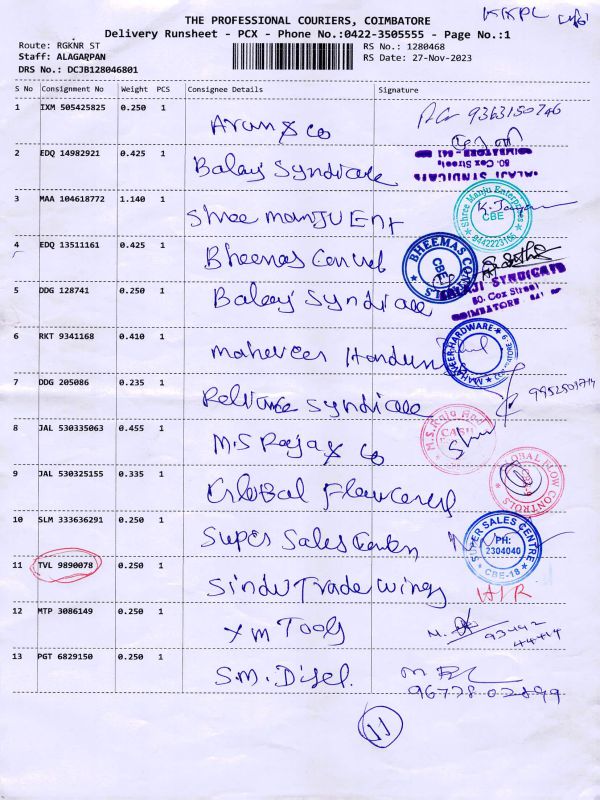 THE PROFESSIONAL COURIERS, COIMBATORE
KKPL
Delivery Runsheet - PCX - Phone No.:0422-3505555 - Page No.:1
Route: RGKNR ST
RS No.: 1280468
Staff: ALAGARPAN
RS Date: 27-Nov-2023
DRS No.: DCJB128046801
S No Consignment No Weight PCS Consignee Details Signature
1 IXM 505425825 0.250 1 Arun & co 9363150746
2 EDQ 14982921 0.425 1 Balaji Syndicate
BALAJI SYNDICATE
50. Cox Street,
COIMBATORE - 641
3 MAA 104618772 1.140 1 Shree manju Ent
Shree Manju Enterprises
CBE
9442223166
4 EDQ 13511161 0.425 1 Bheemas Control
BHEEMAS CONTROLS
CBE
5 DDG 128741 0.250 1 Balaji Syndicate
BALAJI SYNDICATE
50. Cox Street
COIMBATORE
6 RKT 9341168 0.410 1 Mahaveer Hardware
MAHAVEER HARDWARE
7 DDG 205086 0.235 1 Reliance Syndicate
8 JAL 530335063 0.455 1 M.S Raja & co
M.S. Raja And
CASH
9 JAL 530325155 0.335 1 Global Flow Control
GLOBAL FLOW CONTROLS
10 SLM 333636291 0.250 1 Super Sales Centre
SUPER SALES CENTRE
PH:
2304040
CBE-18
11 TVL 9890078 0.250 1 Sindu Trade Wings H/R
12 MTP 3086149 0.250 1 XM Tools
93442
44414
13 PGT 6829150 0.250 1 S.M. Disel.